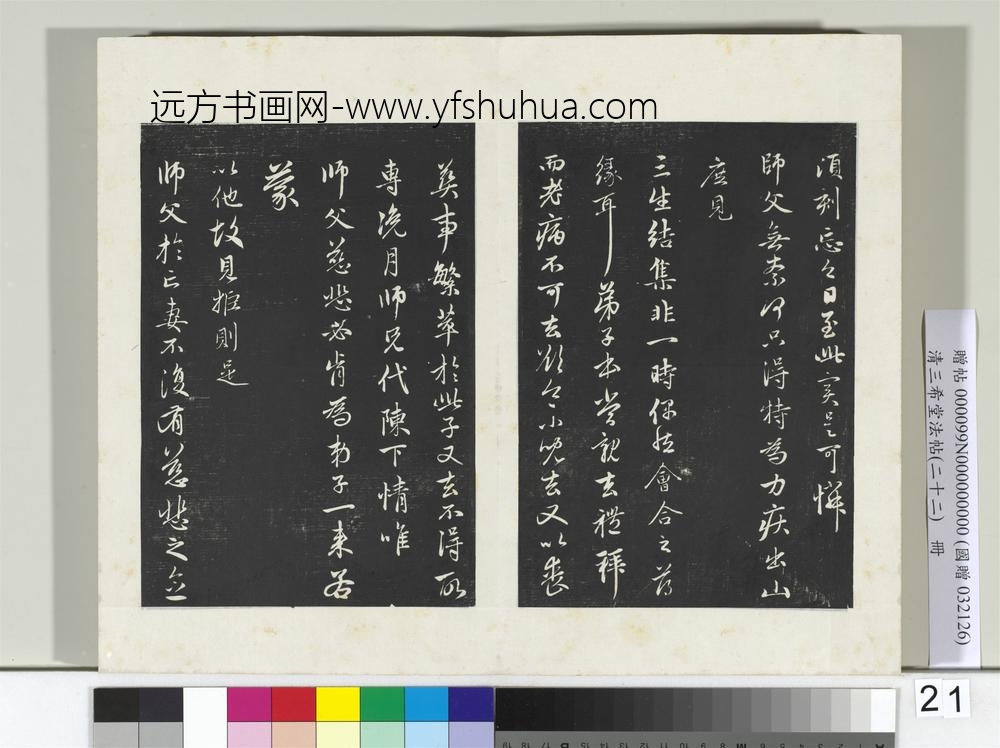 远方书画网-www.yfshuhua.com
須刻忘之日至此實是可憐
師父無奈何只得特為力疾出山
庶見
三生結集非一時偶然會合之薄
緣耳弟子本當親去禮拜
而老病不可去欲令小兒去又以喪
葬事繁萃於此子又去不得所
專浼月師兄代陳下情唯
师父慈悲必肯為弟子一来若
蒙
以他故見拒則是
师父於亡妻不復有慈悲之念
贈帖 000099N000000000 (國贈 032126)
清三希堂法帖(二十二) 冊
21